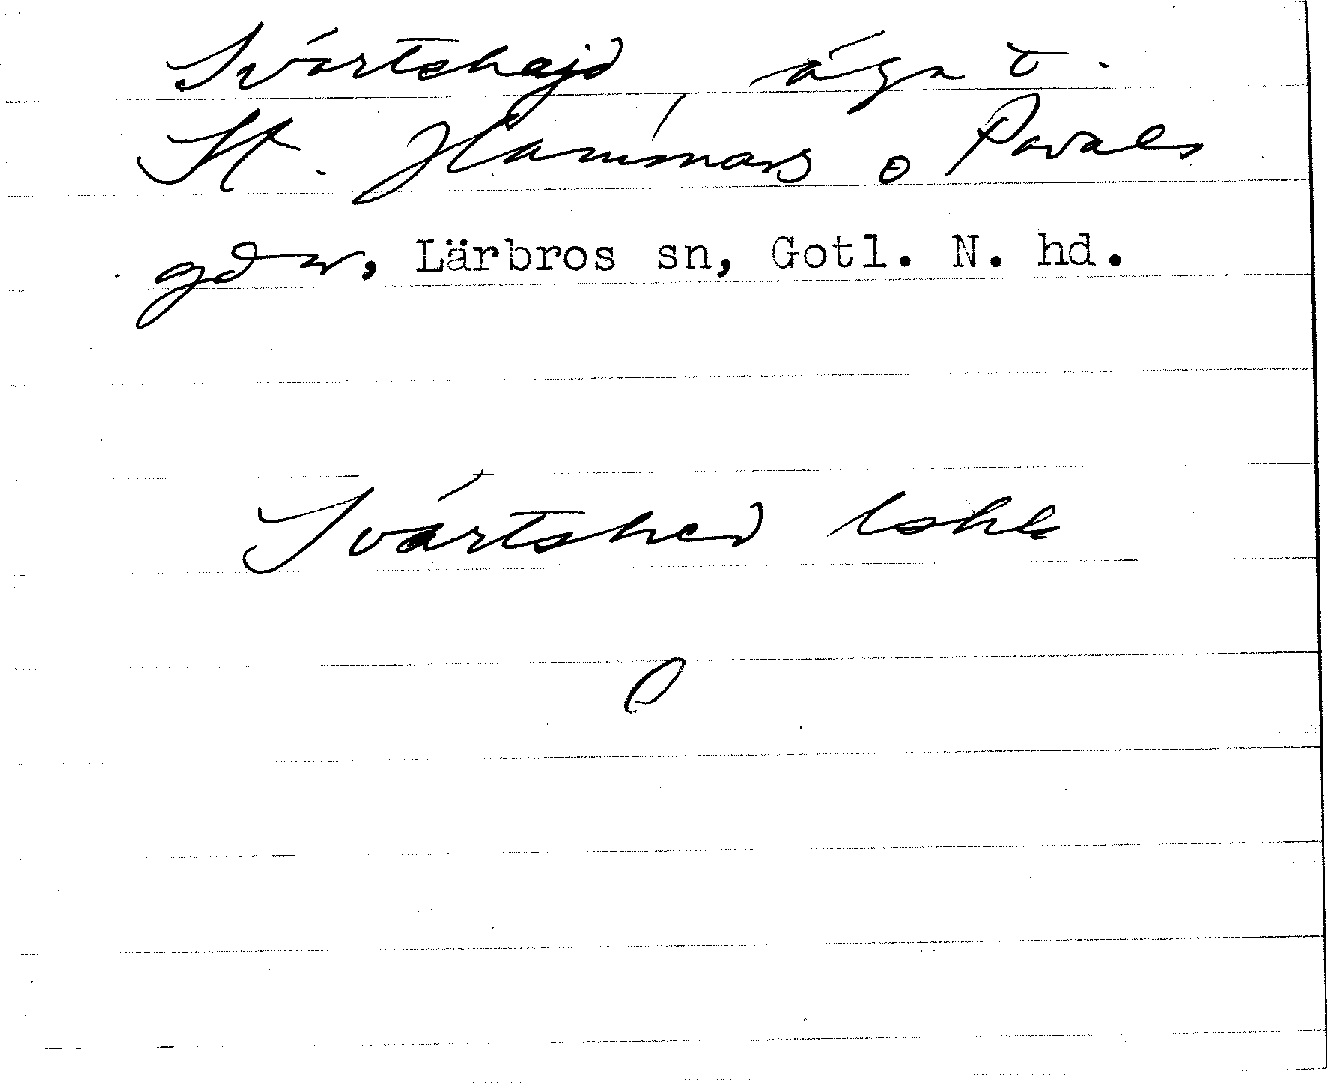 Svártshajd äga t.
St. Hammars o Pavals
gdr, Lärbros sn, Gotl. N. hd.
Svártshed